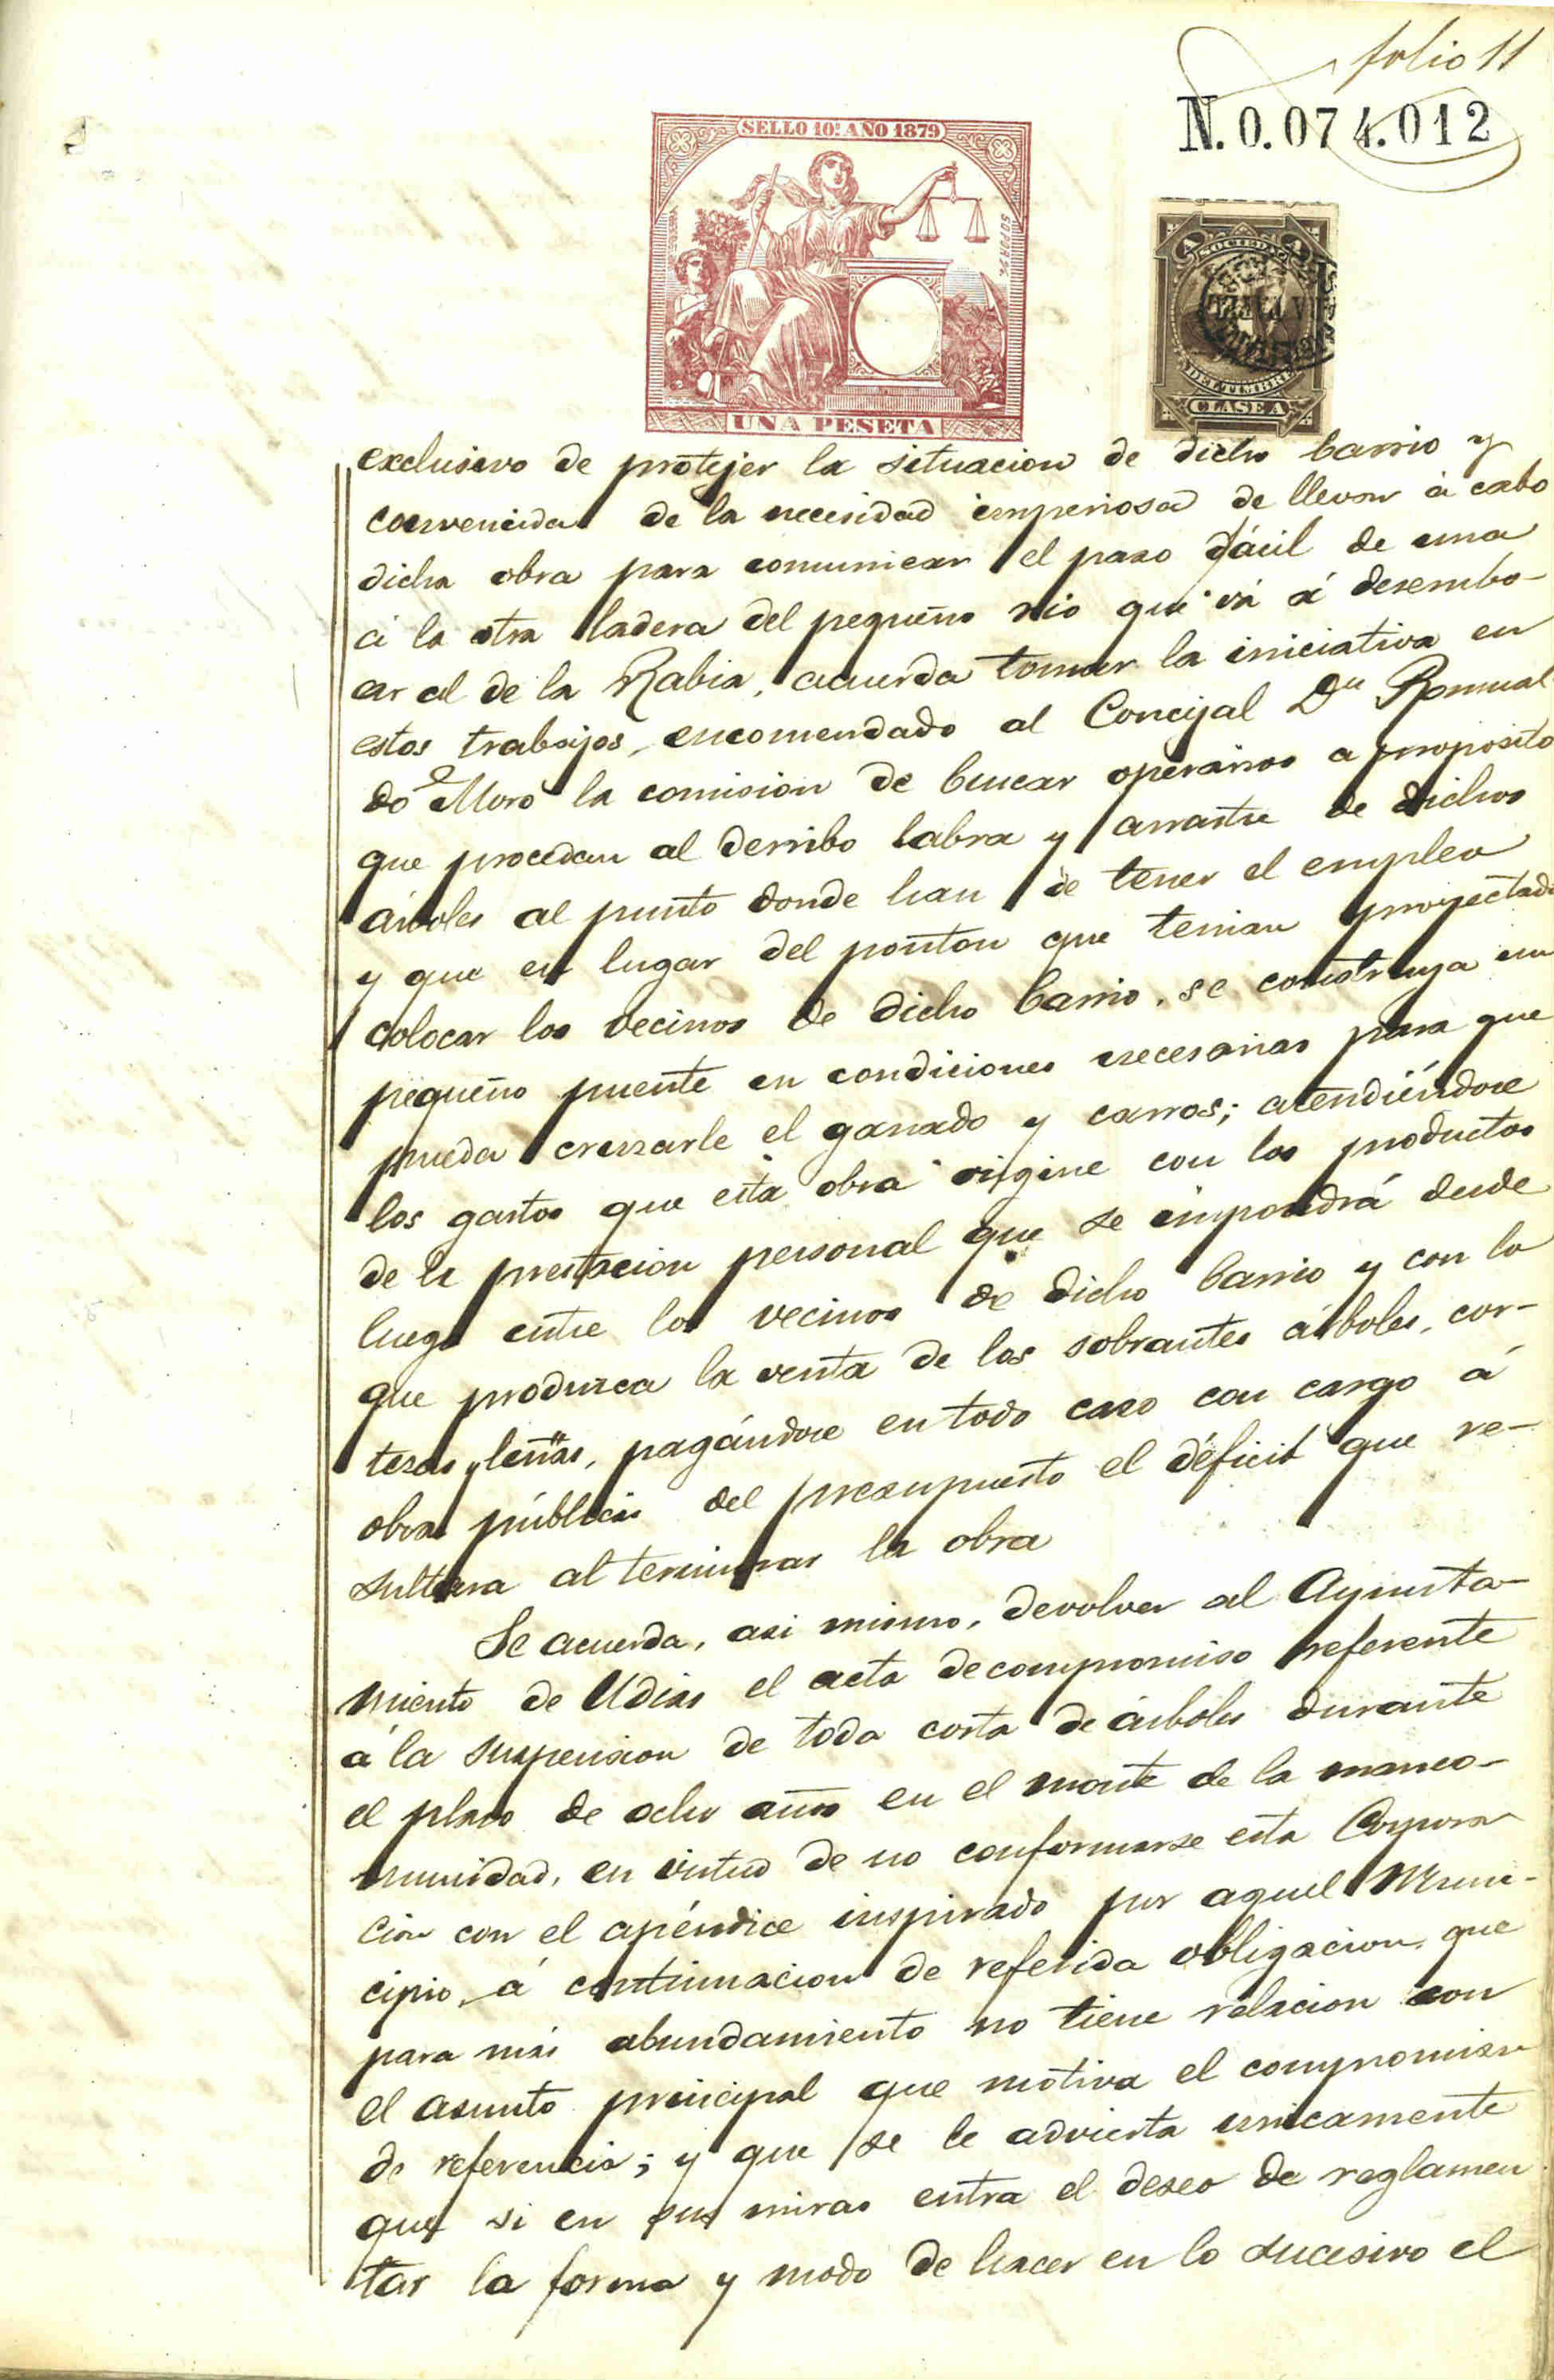 folio 11
N. 0.074.012
SELLO 10º AÑO 1879
SOCIEDAD
DEL TIMBRE
CLASE A
UNA PESETA
exclusivo de protejer la situacion de dicho barrio y
convencida de la necesidad imperiosa de llevar á cabo
dicha obra para comunicar el paso fácil de una
á la otra ladera del pequeño rio que vá á desembo-
car al de la Rabia, acuerda tomar la iniciativa en
estos trabajos, encomendado al Concejal Dn Romual
do Moro la comision de buscar operarios a proposito
que procedan al derribo labra y arrastre de dichos
árboles al punto donde han de tener el empleo
y que en lugar del ponton que tenian proyectado
colocar los vecinos de dicho barrio, se construya un
pequeño puente en condiciones necesarias para que
pueda cruzarle el ganado y carros; atendiéndose
los gastos que esta obra origine con los productos
de la prestacion personal que se impondrá desde
luego entre los vecinos de dicho barrio y con lo
que produzca la venta de los sobrantes árboles, cor-
tezas y leñas, pagándose en todo caso con cargo á
obras públicas del presupuesto el déficit que re-
sultara al terminar la obra
Se acuerda, asi mismo, devolver al Ayunta-
miento de Udias el acta de compromiso referente
á la suspension de toda corta de árboles durante
el plazo de ocho años en el monte de la manco-
munidad, en virtud de no conformarse esta Corpora
cion con el apéndice inspirado por aquel Muni-
cipio, á continuacion de referida obligacion, que
para más abundamiento no tiene relacion con
el asunto principal que motiva el compromiso
de referencia; y que se le advierta unicamente
que si en sus miras entra el deseo de reglamen
tar la forma y modo de hacer en lo sucesivo el